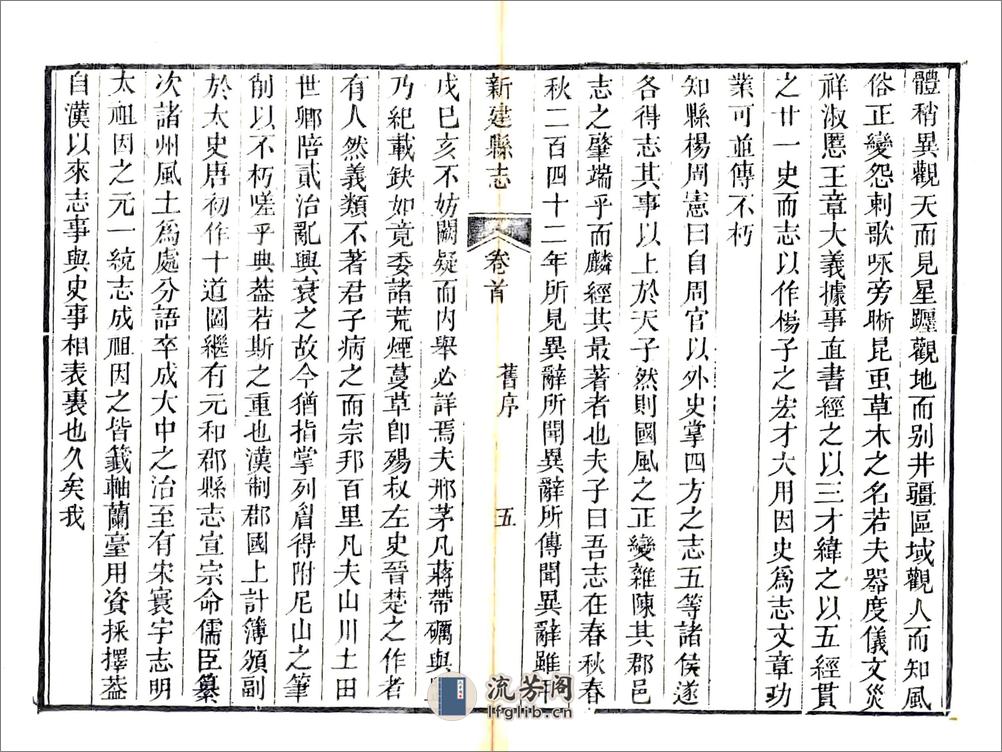 體稍異觀天而見星躔觀地而别井疆區域觀人而知風
俗正變怨刺歌咏旁晰昆虫草木之名若夫器度儀文災
祥淑慝王章大義據事直書經之以三才緯之以五經貫
之廿一史而志以作楊子之宏才大用因史爲志文章功
業可並傳不朽
知縣楊周憲曰自周官以外史掌四方之志五等諸侯遂
各得志其事以上於天子然則國風之正變雜陳其郡邑
志之肇端乎而麟經其最著者也夫子曰吾志在春秋春
秋二百四十二年所見異辭所聞異辭所傳聞異辭雖
新建縣志 卷首 舊序 五
戊巳亥不妨闕疑而内舉必詳焉夫邢茅凡蔣帶礪與
乃紀載缺如竟委諸荒煙蔓草卽殤叔左史晉楚之作者
有人然義類不著君子病之而宗邦百里凡夫山川土田
世卿陪貳治亂興衰之故今猶指掌列眉得附尼山之筆
削以不朽嗟乎典葢若斯之重也漢制郡國上計簿頒副
於太史唐初作十道圖繼有元和郡縣志宣宗命儒臣纂
次諸州風土爲處分語卒成大中之治至有宋寰宇志明
太祖因之元一統志成祖因之皆籤軸蘭臺用資採擇葢
自漢以來志事與史事相表裏也久矣我
流芳阁
lfglib.cn